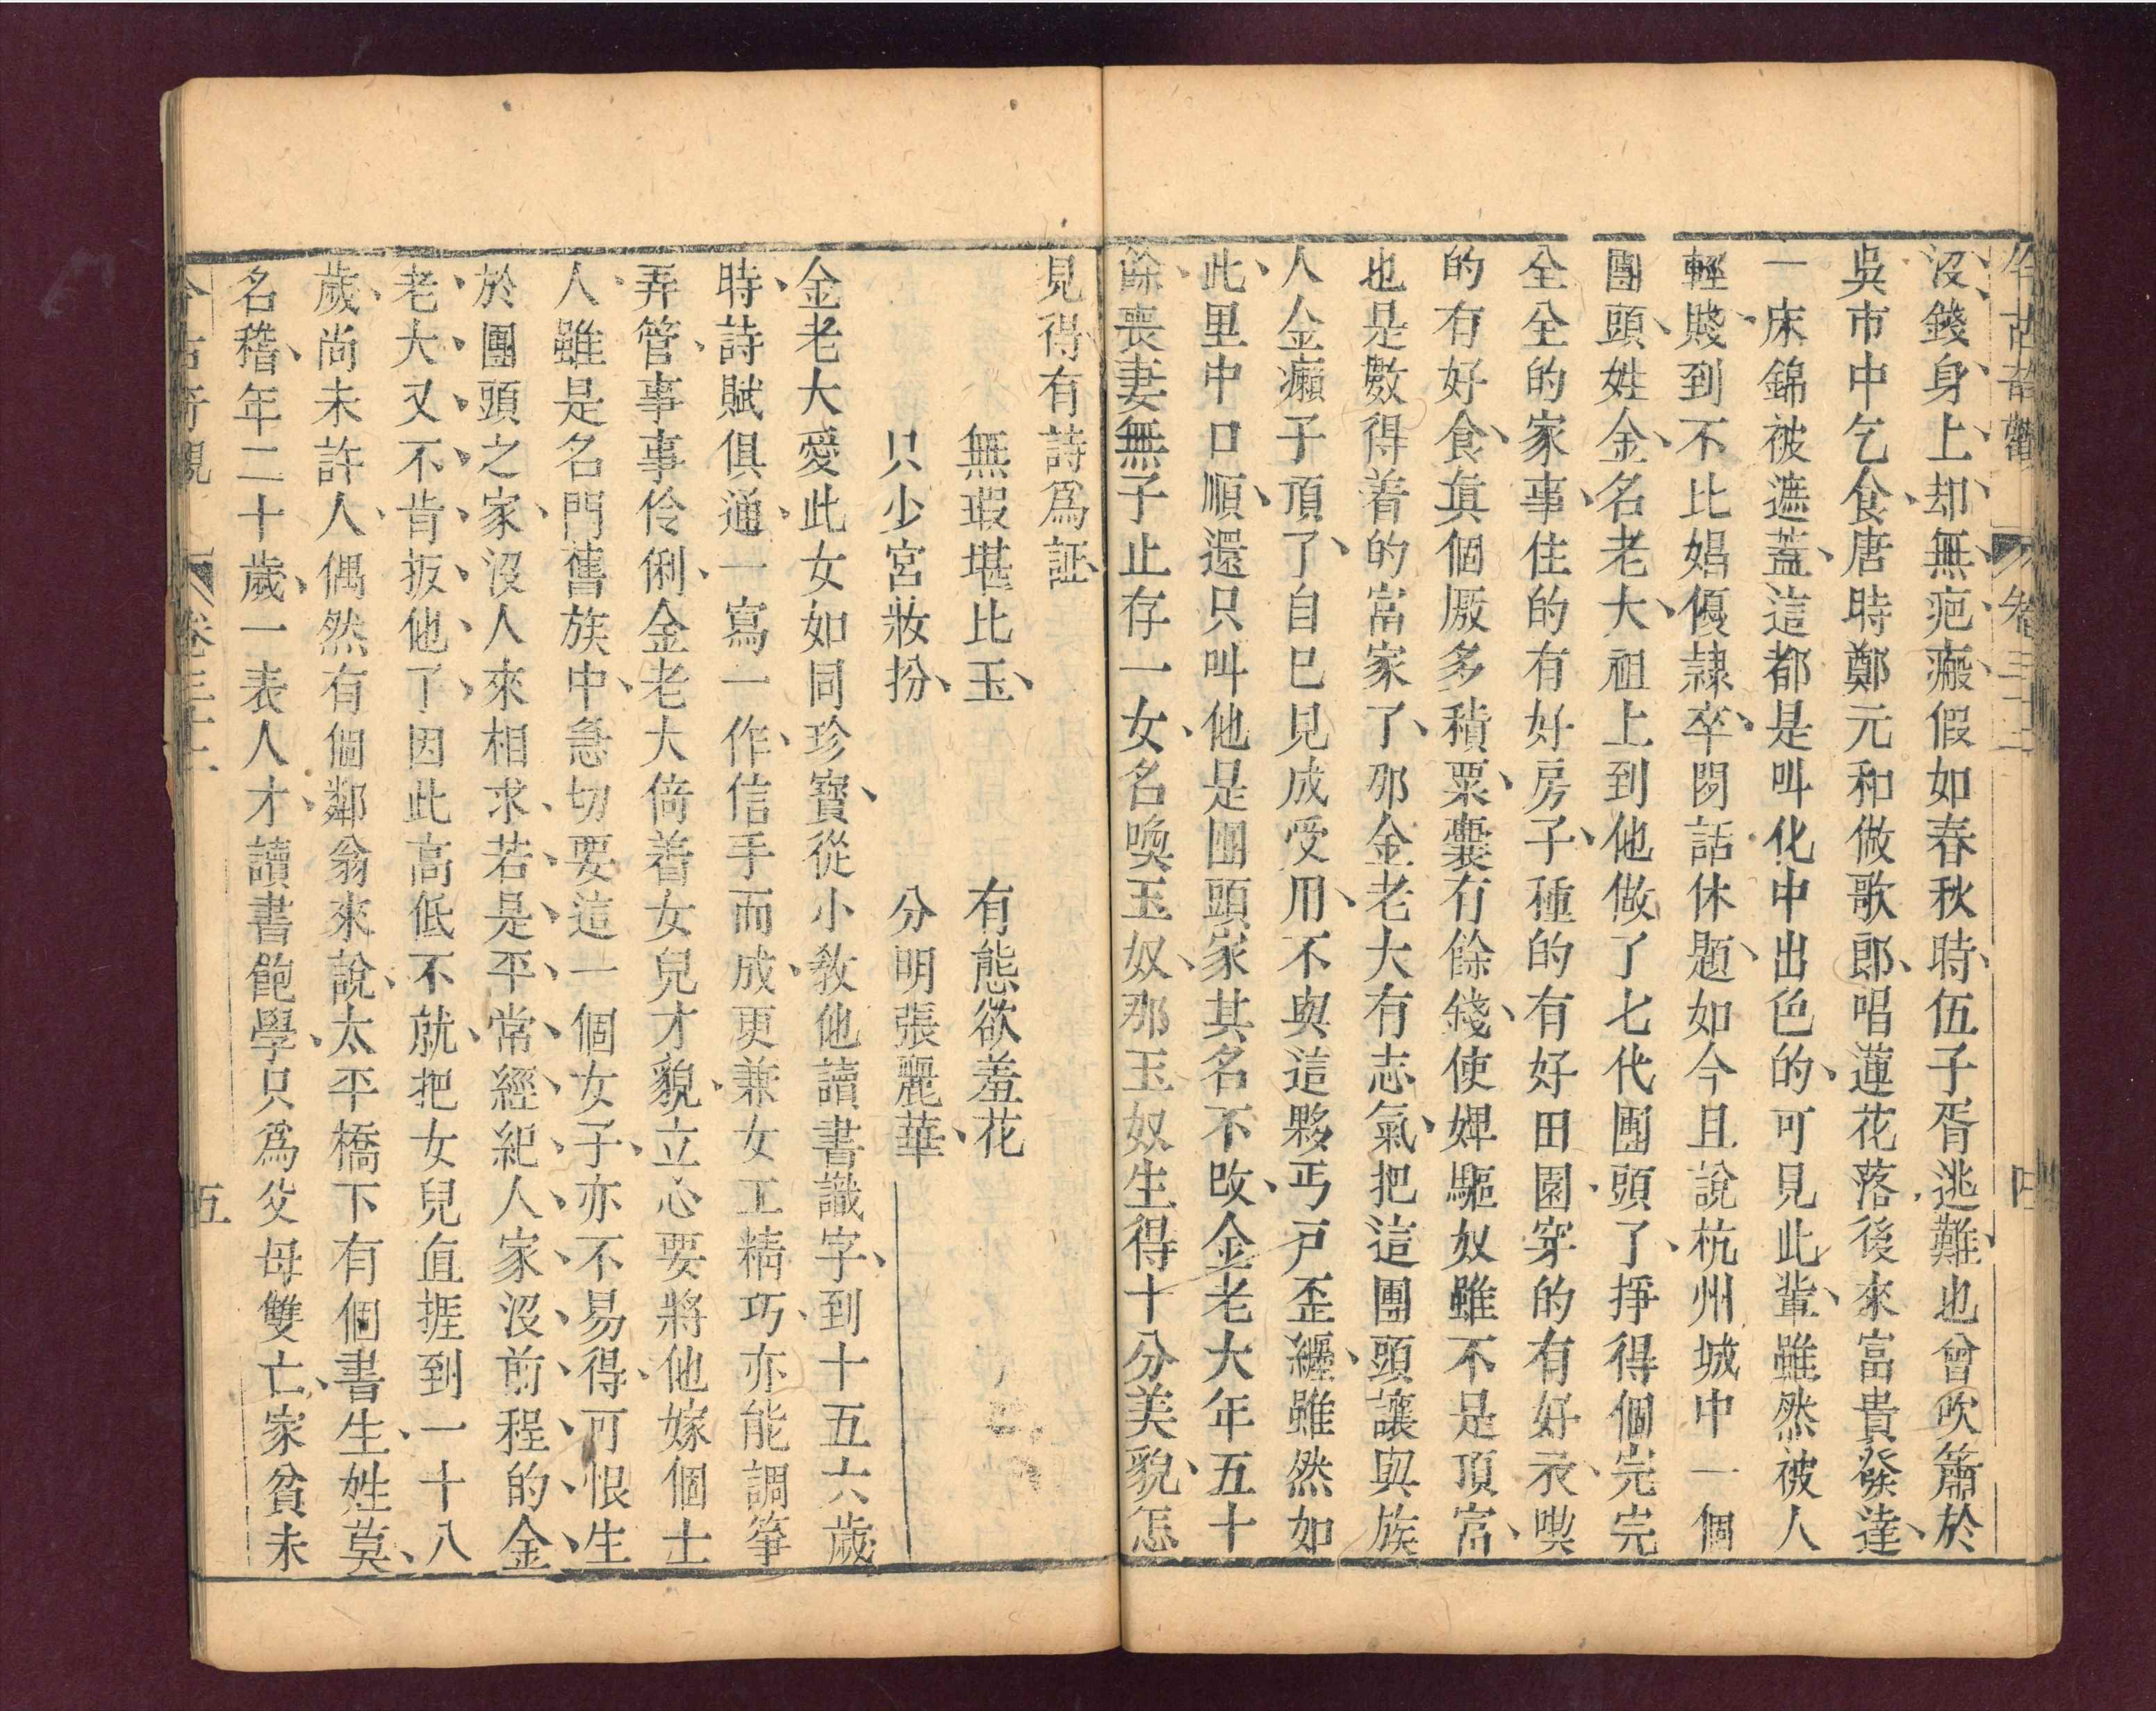 今古奇觀 卷三十二 四
沒錢身上却無疤瘢假如春秋時伍子胥逃難也曾吹簫於
吳市中乞食唐時鄭元和做歌郎唱蓮花落後來富貴發達
一床錦被遮蓋這都是叫化中出色的可見此輩雖然被人
輕賤到不比娼優隸卒閒話休題如今且說杭州城中一個
團頭姓金名老大祖上到他做了七代團頭了掙得個完完
全全的家事住的有好房子種的有好田園穿的有好衣喫
的有好食真個廒多積粟囊有餘錢使婢驅奴雖不是頂富
也是數得着的富家了那金老大有志氣把這團頭讓與族
人金癩子頂了自已見成受用不與這夥丐戶歪纏雖然如
此里中口順還只叫他是團頭家其名不改金老大年五十
餘喪妻無子止存一女名喚玉奴那玉奴生得十分美貌怎
見得有詩爲証
無瑕堪比玉 有態欲羞花
只少宮妝扮 分明張麗華
金老大愛此女如同珍寶從小敎他讀書識字到十五六歲
時詩賦俱通一寫一作信手而成更兼女工精巧亦能調箏
弄管事事伶俐金老大倚着女兒才貌立心要將他嫁個士
人雖是名門舊族中急切要這一個女子亦不易得可恨生
於團頭之家沒人來相求若是平常經紀人家沒前程的金
老大又不肯扳他了因此高低不就把女兒直捱到一十八
歲尚未許人偶然有個鄰翁來說太平橋下有個書生姓莫
名稽年二十歲一表人才讀書飽學只爲父母雙亡家貧未
今古奇觀 卷三十二 五